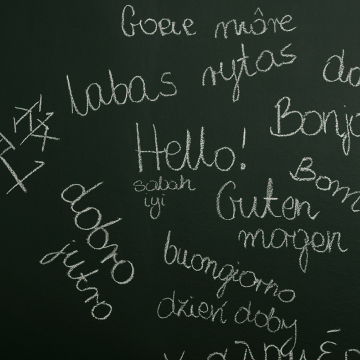 Goeie môre
labas rytas
Bonjo
Hello!
sabah
iyi
Guten
morgen
Bom
dobro
jutro
buongiorno
dzień doby